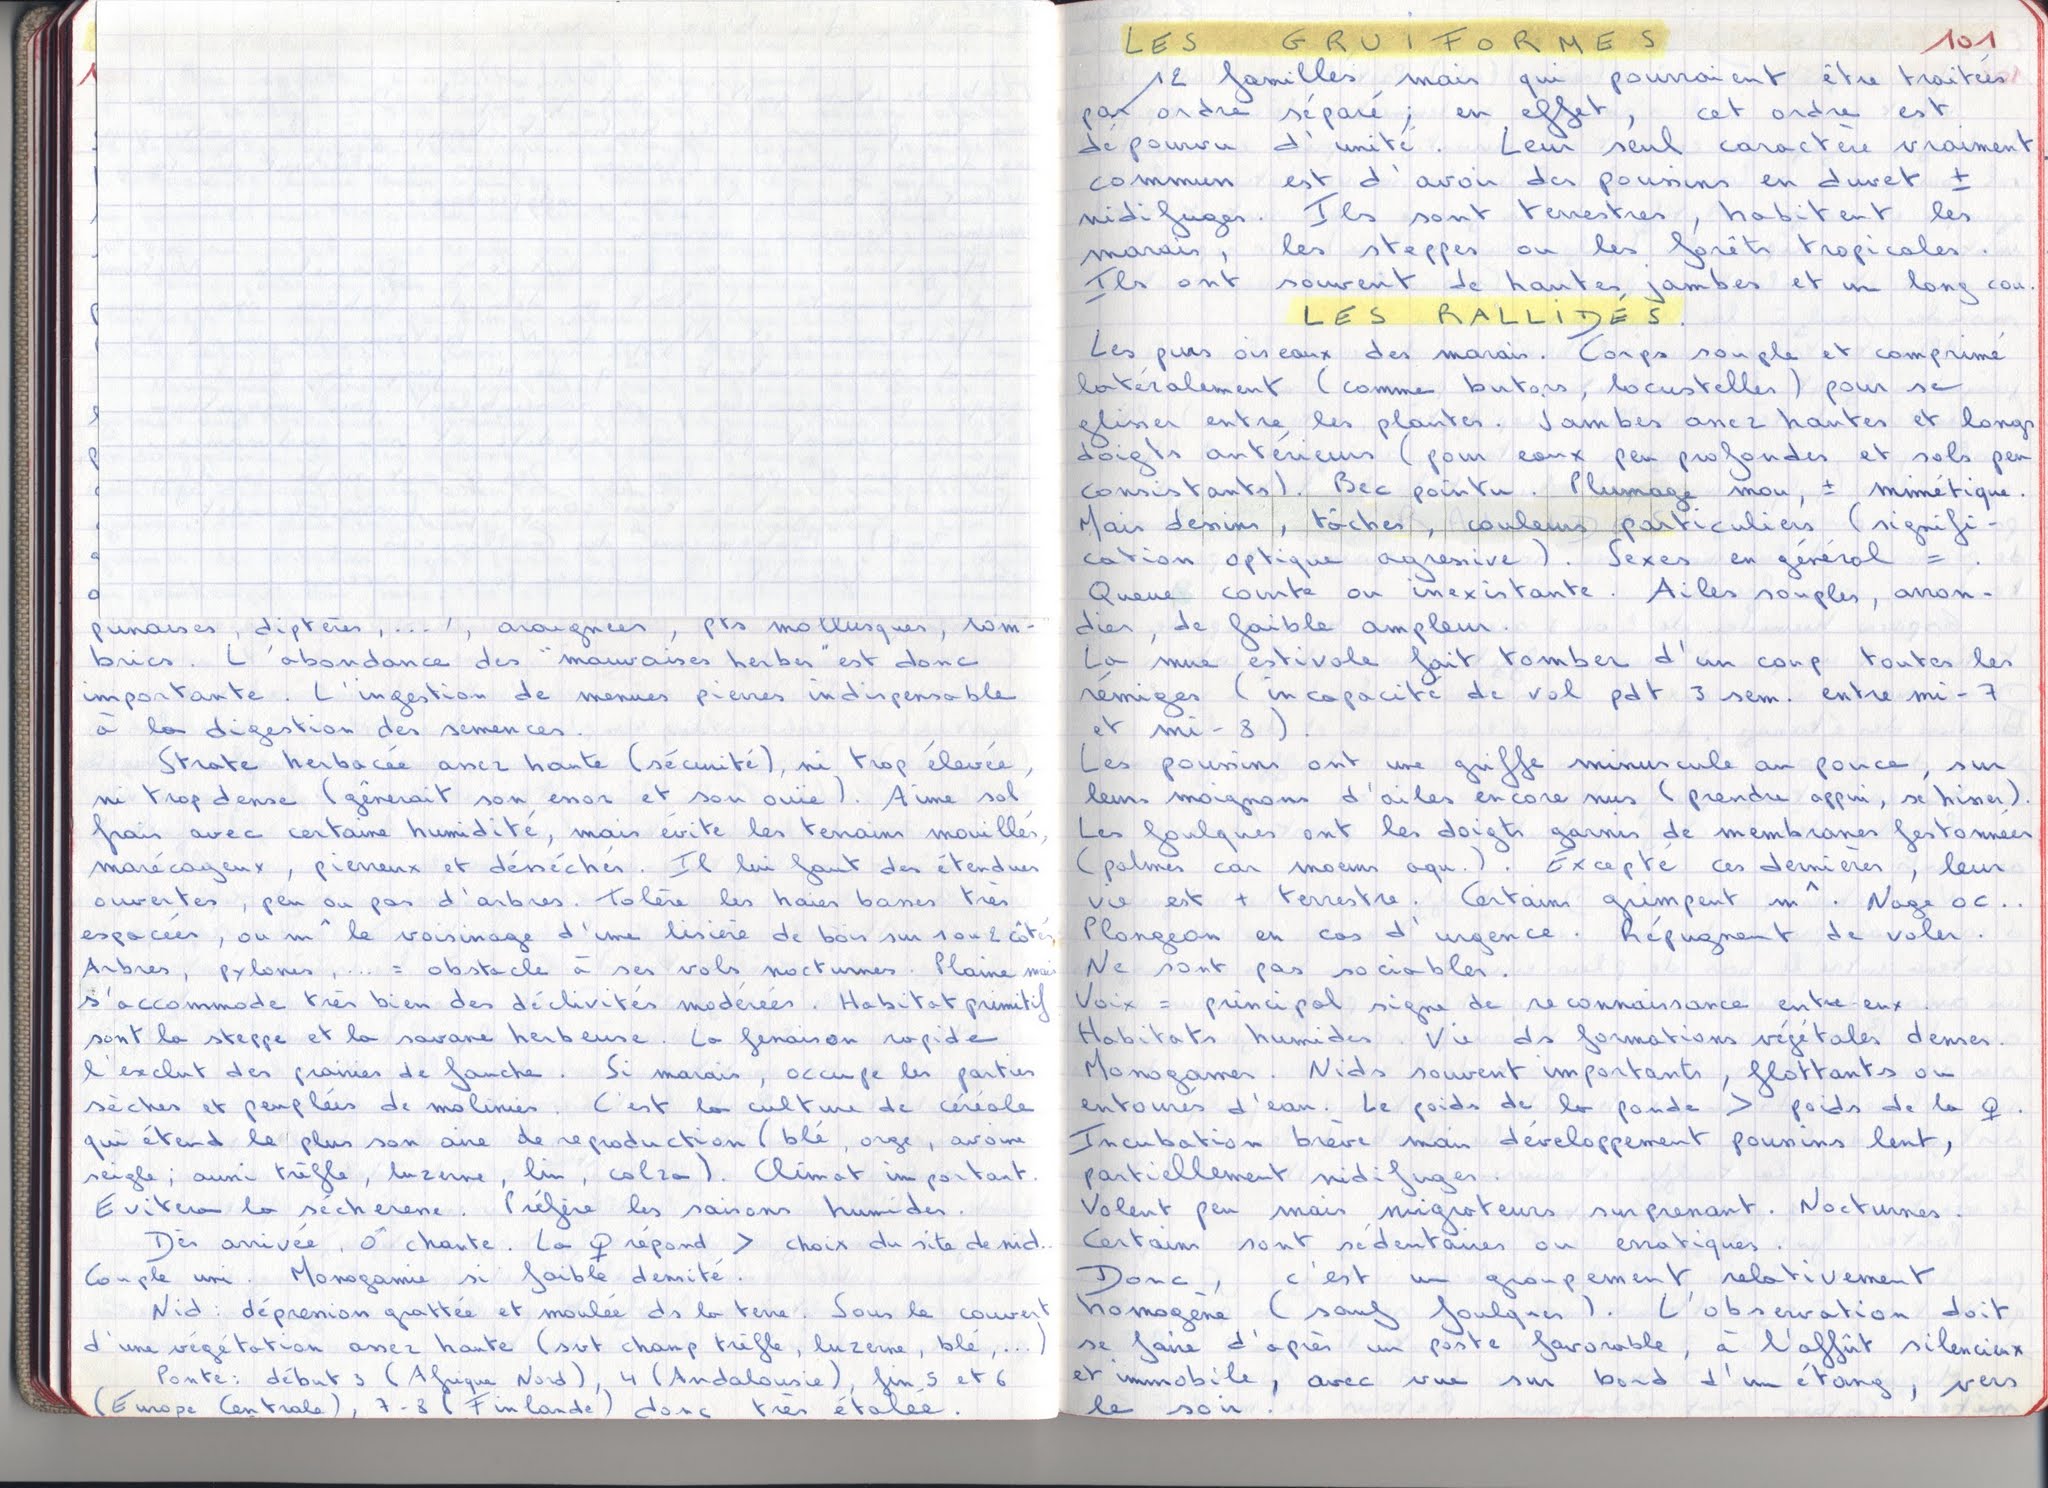 punaises, diptères, ...), araignées, pts mollusques, lom-
brics. L'abondance des "mauvaises herbes" est donc
importante. L'ingestion de menues pierres indispensable
à la digestion des semences.
Strate herbacée assez haute (sécurité), ni trop élevée,
ni trop dense (gênerait son essor et son ouïe). Aime sol
frais avec certaine humidité, mais évite les terrains mouillés,
marécageux, pierreux et désséchés. Il lui faut des étendues
ouvertes, peu ou pas d'arbres. Tolère les haies basses très
espacées, ou m^ le voisinage d'une lisière de bois sur 1 ou 2 côtés
Arbres, pylones, ... = obstacle à ses vols nocturnes. Plaine mais
s'accommode très bien des déclivités modérées. Habitat primitif
sont la steppe et la savane herbeuse. La fenaison rapide
l'exclut des prairies de fauche. Si marais, occupe les parties
sèches et peuplées de molinies. C'est la culture de céréale
qui étend le plus son aire de reproduction (blé, orge, avoine
seigle; aussi trèfle, luzerne, lin, colza). Climat important.
Evitera la sécheresse. Préfère les saisons humides.
Dès arrivée, ♂ chante. La ♀ répond > choix du site de nid..
Couple uni. Monogamie si faible densité.
Nid: dépression grattée et moulée ds la terre. Sous le couvert
d'une végétation assez haute (svt champ trèfle, luzerne, blé,...)
Ponte: début 3 (Afrique Nord), 4 (Andalousie), fin 5 et 6
(Europe Centrale), 7-8 (Finlande) donc très étalée.
LES GRUIFORMES 101
12 familles mais qui pourraient être traitées
par ordre séparé; en effet, cet ordre est
dépourvu d'unité. Leur seul caractère vraiment
commun est d'avoir des poussins en duvet ±
nidifuges. Ils sont terrestres, habitent les
marais, les steppes ou les forêts tropicales.
Ils ont souvent de hautes jambes et un long cou.
LES RALLIDÉS.
Les purs oiseaux des marais. Corps souple et comprimé
latéralement (comme butors, locustelles) pour se
glisser entre les plantes. Jambes assez hautes et longs
doigts antérieurs (pour eaux peu profondes et sols peu
consistants). Bec pointu. Plumage mou, ± mimétique.
Mais dessins, tâches, couleurs particuliers (signifi-
cation optique agressive). Sexes en général = .
Queue courte ou inexistante. Ailes souples, arron-
dies, de faible ampleur.
La mue estivale fait tomber d'un coup toutes les
rémiges (incapacité de vol pdt 3 sem. entre mi-7
et mi-8).
Les poussins ont une griffe minuscule au pouce, sur
leurs moignons d'ailes encore nus (prendre appui, se hisser).
Les foulques ont les doigts garnis de membranes festonnées
(palmes car moeurs aqu.). Excepté ces dernières, leur
vie est + terrestre. Certains grimpent m^. Nage oc..
Plongeon en cas d'urgence. Répugnent de voler.
Ne sont pas sociables.
Voix = principal signe de reconnaissance entre eux.
Habitats humides. Vie ds formations végétales denses.
Monogames. Nids souvent importants, flottants ou
entourés d'eau. Le poids de la ponde > poids de la ♀.
Incubation brève mais développement poussins lent,
partiellement nidifuges.
Volent peu mais migrateurs surprenant. Nocturnes.
Certains sont sédentaires ou erratiques.
Donc, c'est un groupement relativement
homogène (sauf foulques). L'observation doit
se faire d'après un poste favorable, à l'affût silencieux
et immobile, avec vue sur bord d'un étang, vers
le soir.